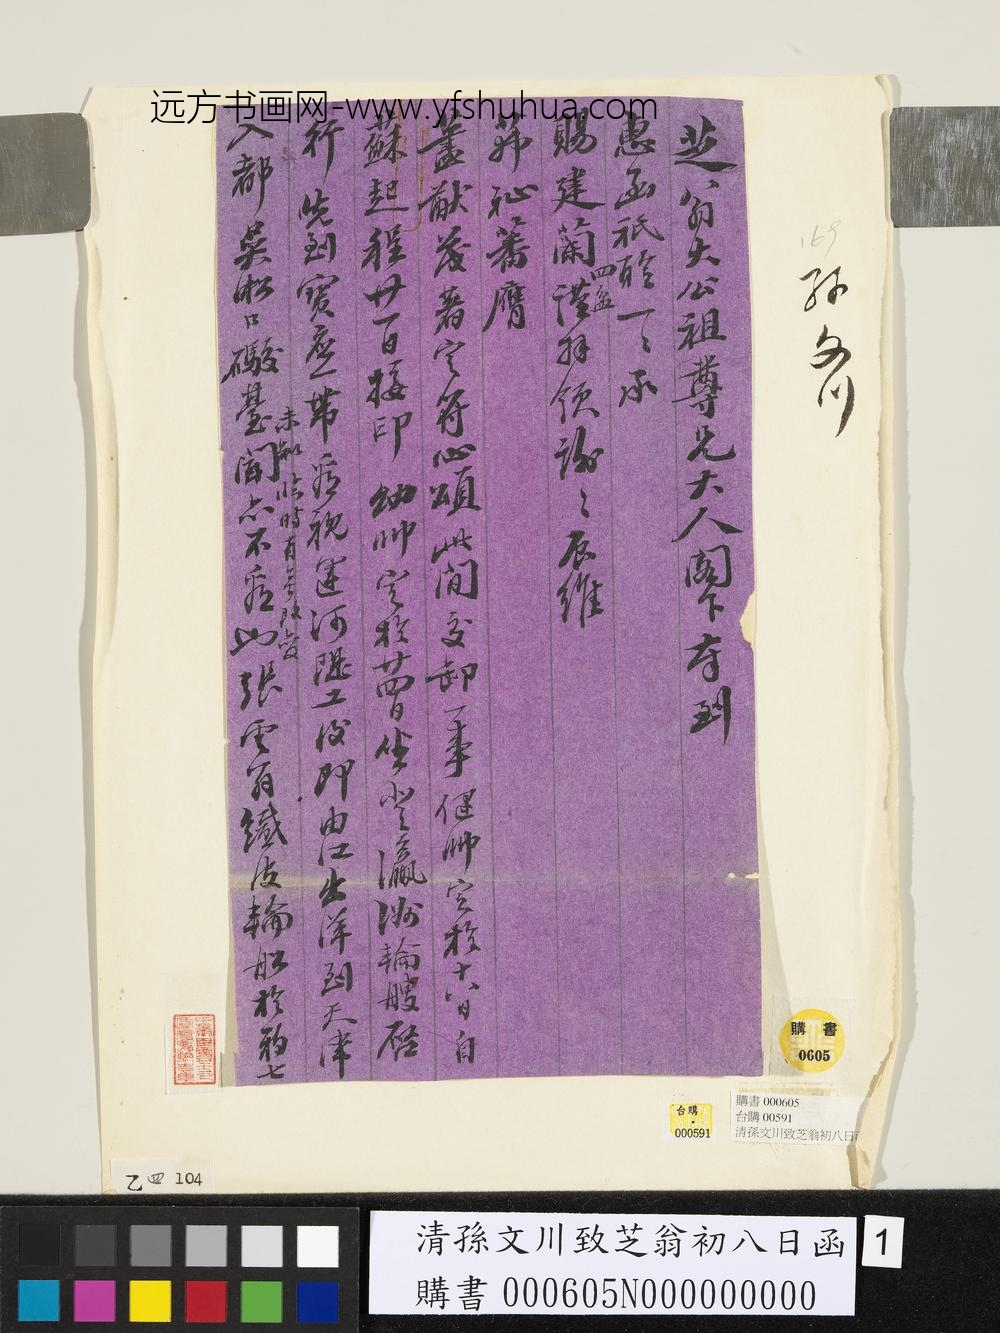 远方书画网-www.yfshuhua.com
芝翁大公祖尊兄大人閣下奉到
惠函祇聆一一承
賜建蘭四盆謹拜領謝謝辰維
茀祉蕃膺
藎猷茂著定符心頌此間交卸一事 帥定於十八日自
蘇起程廿一日接印 幼帥定於廿四日坐登瀛洲輪艘啓
行先到寶應帶看視運河隄工後即由江出洋到天津
未知臨時有無改變
入都吳淞口礮臺聞亦不看也張雲翁鐵皮輪船於初七
169
孫文川
購書
0605
台購
000591
購書 000605
台購 00591
清孫文川致芝翁初八日
乙四 104
清孫文川致芝翁初八日函
購書 000605N000000000
1